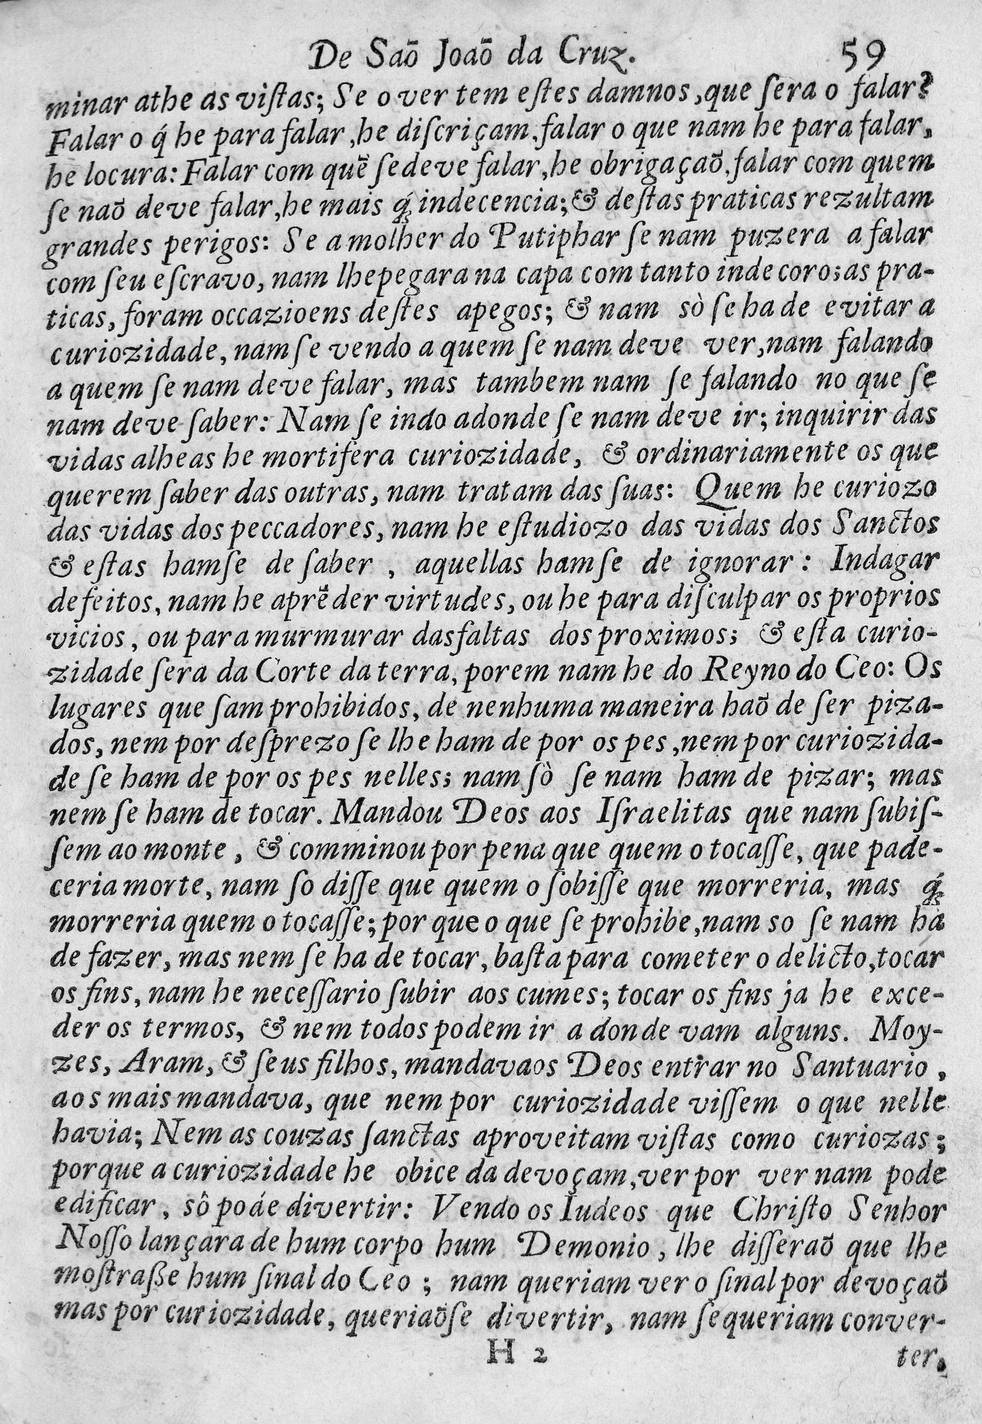 De Saõ Joaõ da Cruz. 59
minar athe as viſtas; Se o ver tem eſtes damnos, que ſera o falar?
Falar o q́ he para falar, he diſcriçam, falar o que nam he para falar,
he locura: Falar com quẽ ſe deve falar, he obrigaçaõ, falar com quem
ſe naõ deve falar, he mais q́ indecencia; & deſtas praticas rezultam
grandes perigos: Se a molher do Putiphar ſe nam puzera a falar
com ſeu eſcravo, nam lhe pegara na capa com tanto indecoro; as pra-
ticas, foram occazioens deſtes apegos; & nam sò ſe ha de evitar a
curiozidade, nam ſe vendo a quem ſe nam deve ver, nam falando
a quem ſe nam deve falar, mas tambem nam ſe falando no que ſe
nam deve ſaber: Nam ſe indo adonde ſe nam deve ir; inquirir das
vidas alheas he mortifera curiozidade, & ordinariamente os que
querem ſaber das outras, nam tratam das ſuas: Quem he curiozo
das vidas dos peccadores, nam he eſtudiozo das vidas dos Sanctos
& eſtas hamſe de ſaber, aquellas hamſe de ignorar: Indagar
defeitos, nam he aprẽder virtudes, ou he para diſculpar os proprios
vicios, ou para murmurar das faltas dos proximos; & eſta curio-
zidade ſera da Corte da terra, porem nam he do Reyno do Ceo: Os
lugares que ſam prohibidos, de nenhuma maneira haõ de ſer piza-
dos, nem por deſprezo ſe lhe ham de por os pes, nem por curiozida-
de ſe ham de por os pes nelles; nam ſò ſe nam ham de pizar; mas
nem ſe ham de tocar. Mandou Deos aos Iſraelitas que nam ſubiſ-
ſem ao monte, & comminou por pena que quem o tocaſſe, que pade-
ceria morte, nam ſo diſſe que quem o ſobiſſe que morreria, mas q́
morreria quem o tocaſſe; por que o que ſe prohibe, nam so ſe nam ha
de fazer, mas nem ſe ha de tocar, baſta para cometer o delicto, tocar
os fins, nam he neceſſario ſubir aos cumes; tocar os fins ja he exce-
der os termos, & nem todos podem ir a donde vam alguns. Moy-
zes, Aram, & ſeus filhos, mandavaos Deos entrar no Santuario,
aos mais mandava, que nem por curiozidade viſſem o que nelle
havia; Nem as couzas ſanctas aproveitam viſtas como curiozas;
porque a curiozidade he obice da devoçam, ver por ver nam pode
edificar, sô pode divertir: Vendo os Iudeos que Chriſto Senhor
Noſſo lançara de hum corpo hum Demonio, lhe diſſeraõ que lhe
moſtraſſe hum ſinal do Ceo; nam queriam ver o ſinal por devoçaõ
mas por curiozidade, queriaõſe divertir, nam ſe queriam conver-
H 2 ter,